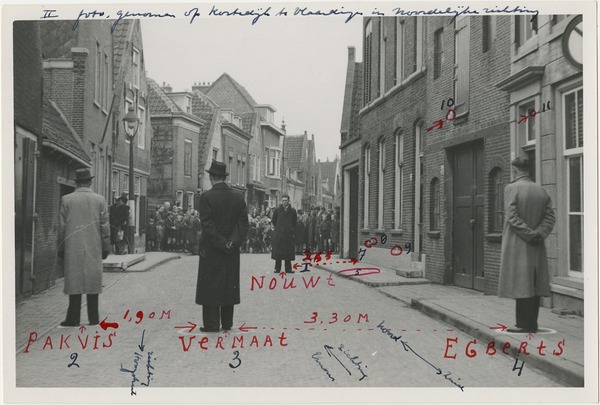 II foto, genomen op Kortedijk te Vlaardingen in Noordelijke richting
10
11
8
9
7
2,65
1
NOUWT
1,90 M
3,30 M
PAKVIS
VERMAAT
EGBERTS
2
3
4
richting
richting